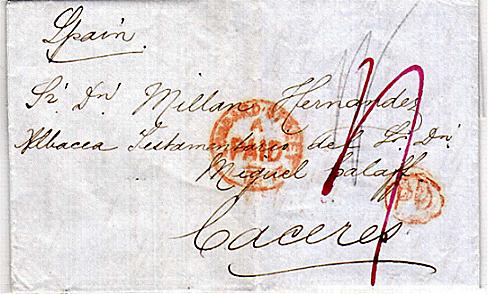 Spain
Sr. Dn. Millan Hernandez
Albacea Testamentario del Sr. Dn.
Miguel Calaff.
Caceres
A
PAID
PD